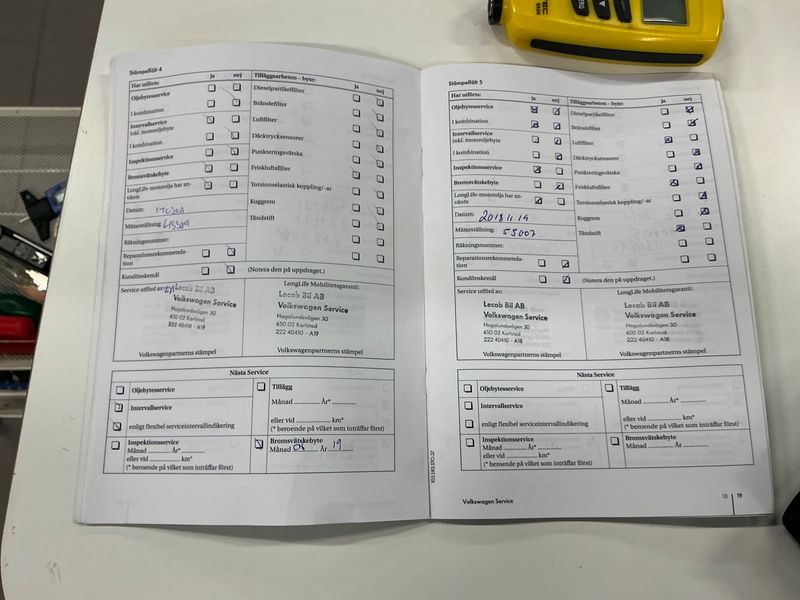 Stämpelfält 4
Har utförts: ja nej
Oljebytesservice
I kombination
Intervallservice
inkl. motoroljebyte
I kombination
Inspektionsservice
Bromsvätskebyte
LongLife-motorolja har an-
vänts
Datum:
Mätarställning:
Räkningsnummer:
Reparationsrekommenda-
tion
Kundönskemål
Tilläggsarbeten – byte: ja nej
Dieselpartikelfilter
Bränslefilter
Luftfilter
Däcktrycksensorer
Punkteringsvätska
Friskluftsfilter
Torsionselastisk koppling/-ar
Kuggrem
Tändstift
(Notera den på uppdraget.)
Service utförd av:
Lecab Bil AB
Volkswagen Service
Hagalundsvägen 30
650 02 Karlstad
222 40410 - A19
Volkswagenpartnerns stämpel
LongLife Mobilitetsgaranti:
Lecab Bil AB
Volkswagen Service
Hagalundsvägen 30
650 02 Karlstad
222 40410 - A19
Volkswagenpartnerns stämpel
Nästa Service
Oljebytesservice
Intervallservice
enligt flexibel serviceintervallindikering
Inspektionsservice
Månad År*
eller vid km*
(* beroende på vilket som inträffar först)
Tillägg
Månad År*
eller vid km*
(* beroende på vilket som inträffar först)
Bromsvätskebyte
Månad 08 År 19
Stämpelfält 5
Har utförts: ja nej
Oljebytesservice
I kombination
Intervallservice
inkl. motoroljebyte
I kombination
Inspektionsservice
Bromsvätskebyte
LongLife-motorolja har an-
vänts
Datum: 2018 11 19
Mätarställning: 55007
Räkningsnummer:
Reparationsrekommenda-
tion
Kundönskemål
Tilläggsarbeten – byte: ja nej
Dieselpartikelfilter
Bränslefilter
Luftfilter
Däcktrycksensorer
Punkteringsvätska
Friskluftsfilter
Torsionselastisk koppling/-ar
Kuggrem
Tändstift
(Notera den på uppdraget.)
Service utförd av:
Lecab Bil AB
Volkswagen Service
Hagalundsvägen 30
650 02 Karlstad
222 40410 - A18
Volkswagenpartnerns stämpel
LongLife Mobilitetsgaranti:
Lecab Bil AB
Volkswagen Service
Hagalundsvägen 30
650 02 Karlstad
222 40410 - A18
Volkswagenpartnerns stämpel
Nästa Service
Oljebytesservice
Intervallservice
enligt flexibel serviceintervallindikering
Inspektionsservice
Månad År*
eller vid km*
(* beroende på vilket som inträffar först)
Tillägg
Månad År*
eller vid km*
(* beroende på vilket som inträffar först)
Bromsvätskebyte
Månad År
Volkswagen Service
18 19